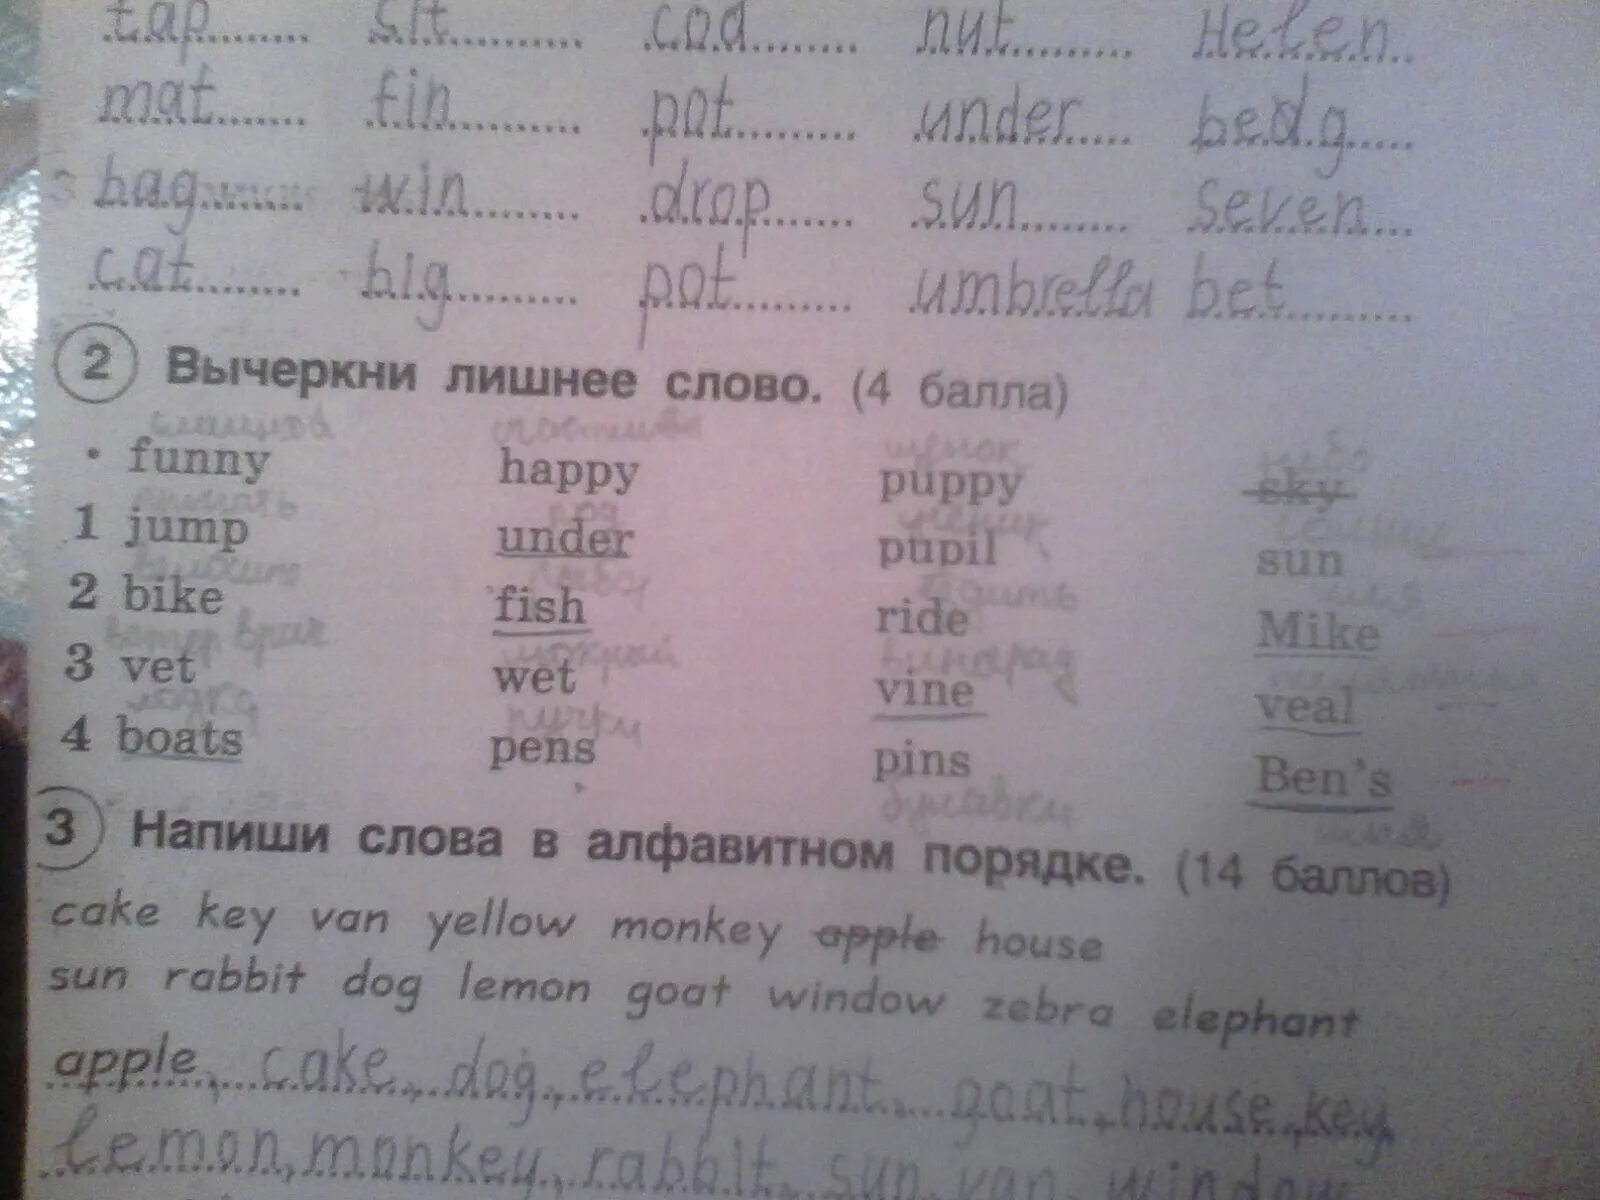 tap sit cod nut Helen
mat fin pot under bedg
bag win drop sun seven
cat big pot umbrella bet
2 Вычеркни лишнее слово. (4 балла)
щенок небо
• funny happy puppy sky
под ученик
1 jump under pupil sun
рыба
2 bike fish ride Mike
ветер врач мокрый виноград
3 vet wet vine veal
лодка ручки
4 boats pens pins Ben's
булавки
3 Напиши слова в алфавитном порядке. (14 баллов)
cake key van yellow monkey apple house
sun rabbit dog lemon goat window zebra elephant
apple, cake, dog, elephant, goat, house, key,
lemon, monkey, rabbit, sun, van, window